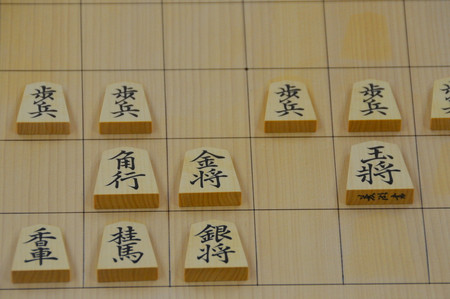 歩兵
歩兵
歩兵
歩兵
角行
金将
玉将
香車
桂馬
銀将